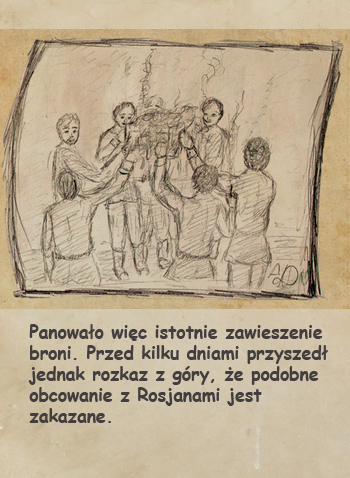 Panowało więc istotnie zawieszenie
broni. Przed kilku dniami przyszedł
jednak rozkaz z góry, że podobne
obcowanie z Rosjanami jest
zakazane.